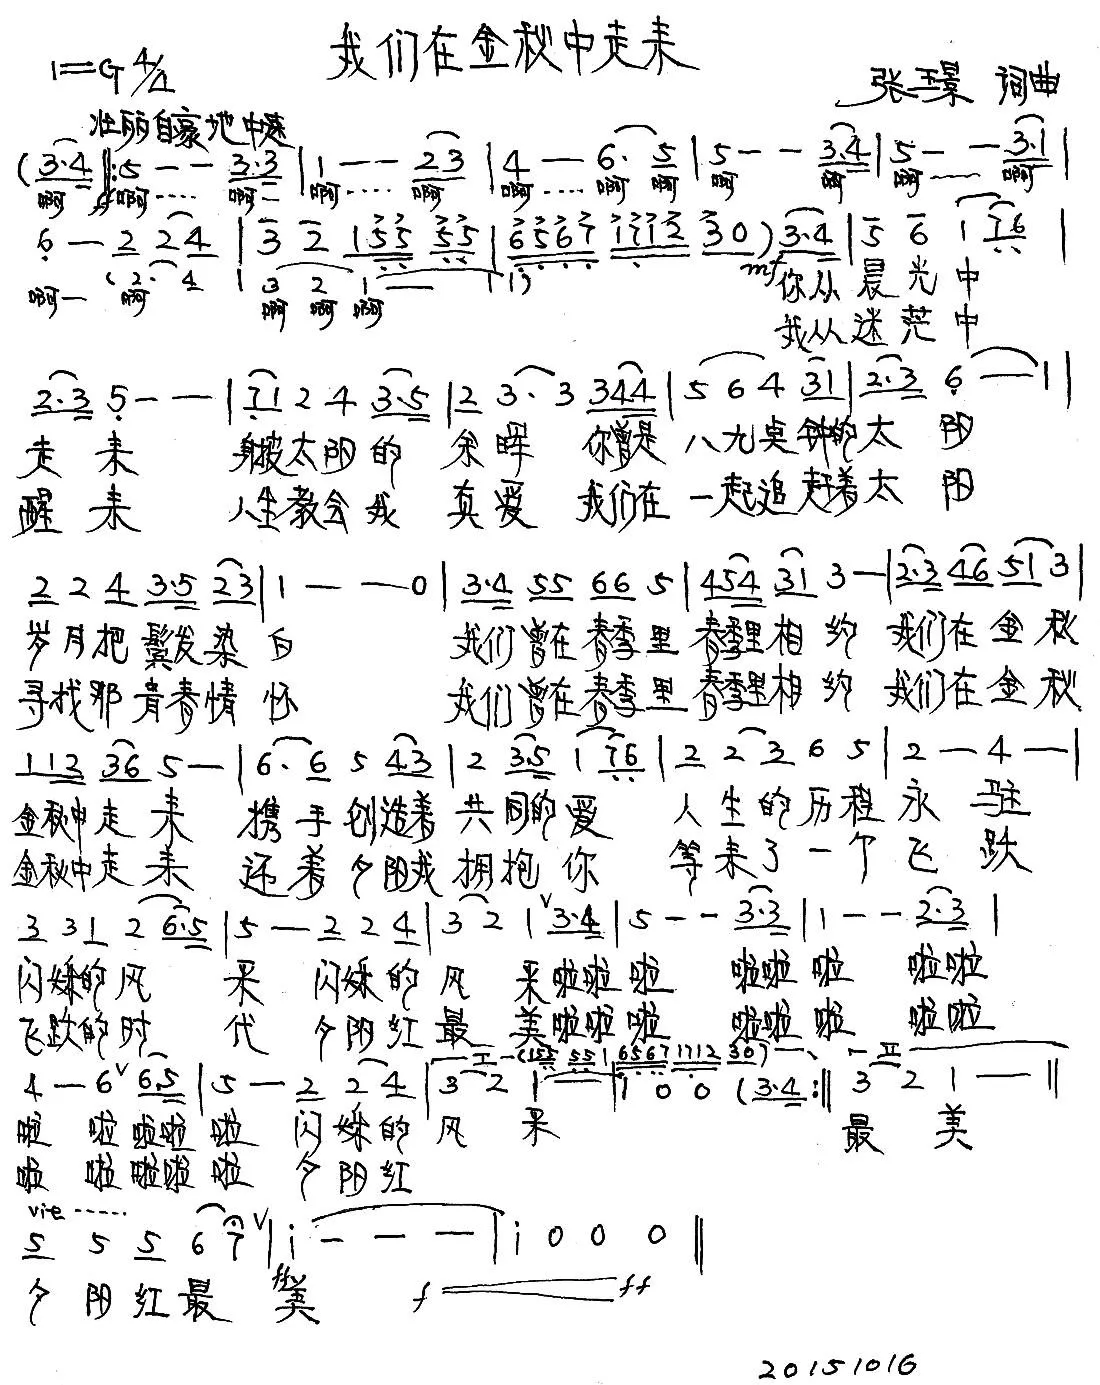 我们在金秋中走来
1=G 4/4
张玉景 词曲
壮丽自豪地 中速
(3·4 ‖: 5 - - 3·3 | 1 - - 23 | 4 - 6· 5 | 5 - - 3·4 | 5 - - 3·1 |
啊 啊····· 啊— 啊····· 啊 啊····· 啊 啊 啊 啊 啊 啊
6 - 2 2 4 | 3 2 1 55 55 | 6567 1712 30 ) 3·4 | 5 6 1 76 |
(2· 4 | 3 2 1 - | 1)
啊— 啊 啊 啊 啊
mf 你从 晨光中
我从 迷茫中
2·3 5 - - | 71 2 4 3·5 | 2 3· 3 344 | 5 6 4 31 | 2·3 6 - 1 |
走 来 身披太阳的 余晖 你曾是 八九点钟的太 阳
醒 来 人生教会我 真爱 我们在 一起追赶着太 阳
2 2 4 3·5 23 | 1 - - 0 | 3·4 55 66 5 | 454 31 3 - | 2·3 46 51 3 |
岁月把鬓发染 白 我们曾在春季里 春季里相约 我们在金秋
寻找那青春情 怀 我们曾在春季里 春季里相约 我们在金秋
112 36 5 - | 6· 6 5 43 | 2 35 1 76 | 2 2 3 6 5 | 2 - 4 - |
金秋中走 来 携手创造着 共同的爱 人生的历程 永 驻
金秋中走 来 还着夕阳我 拥抱你 等来了一个 飞 跃
3 3 1 2 6·5 | 5 - 2 2 4 | 3 2 1 ∨ 3·4 | 5 - - 3·3 | 1 - - 2·3 |
闪烁的风 采 闪烁的 风 采啦啦 啦 啦啦 啦 啦啦
飞跃的时 代 夕阳红 最 美啦啦 啦 啦啦 啦 啦啦
一 (155 551 | 6567 1712 30) 二
4 - 6 ∨ 6·5 | 5 - 2 2 4 | 3 2 1 - | 1 0 0 (3·4 :‖ 3 2 1 - - ‖
啦 啦 啦啦 啦 闪烁的 风 采 最 美
啦 啦 啦啦 啦 夕阳红
5 5 5 6 7 ∨ | i - - - | i 0 0 0 ‖
夕 阳红最 美 f ff
20151016